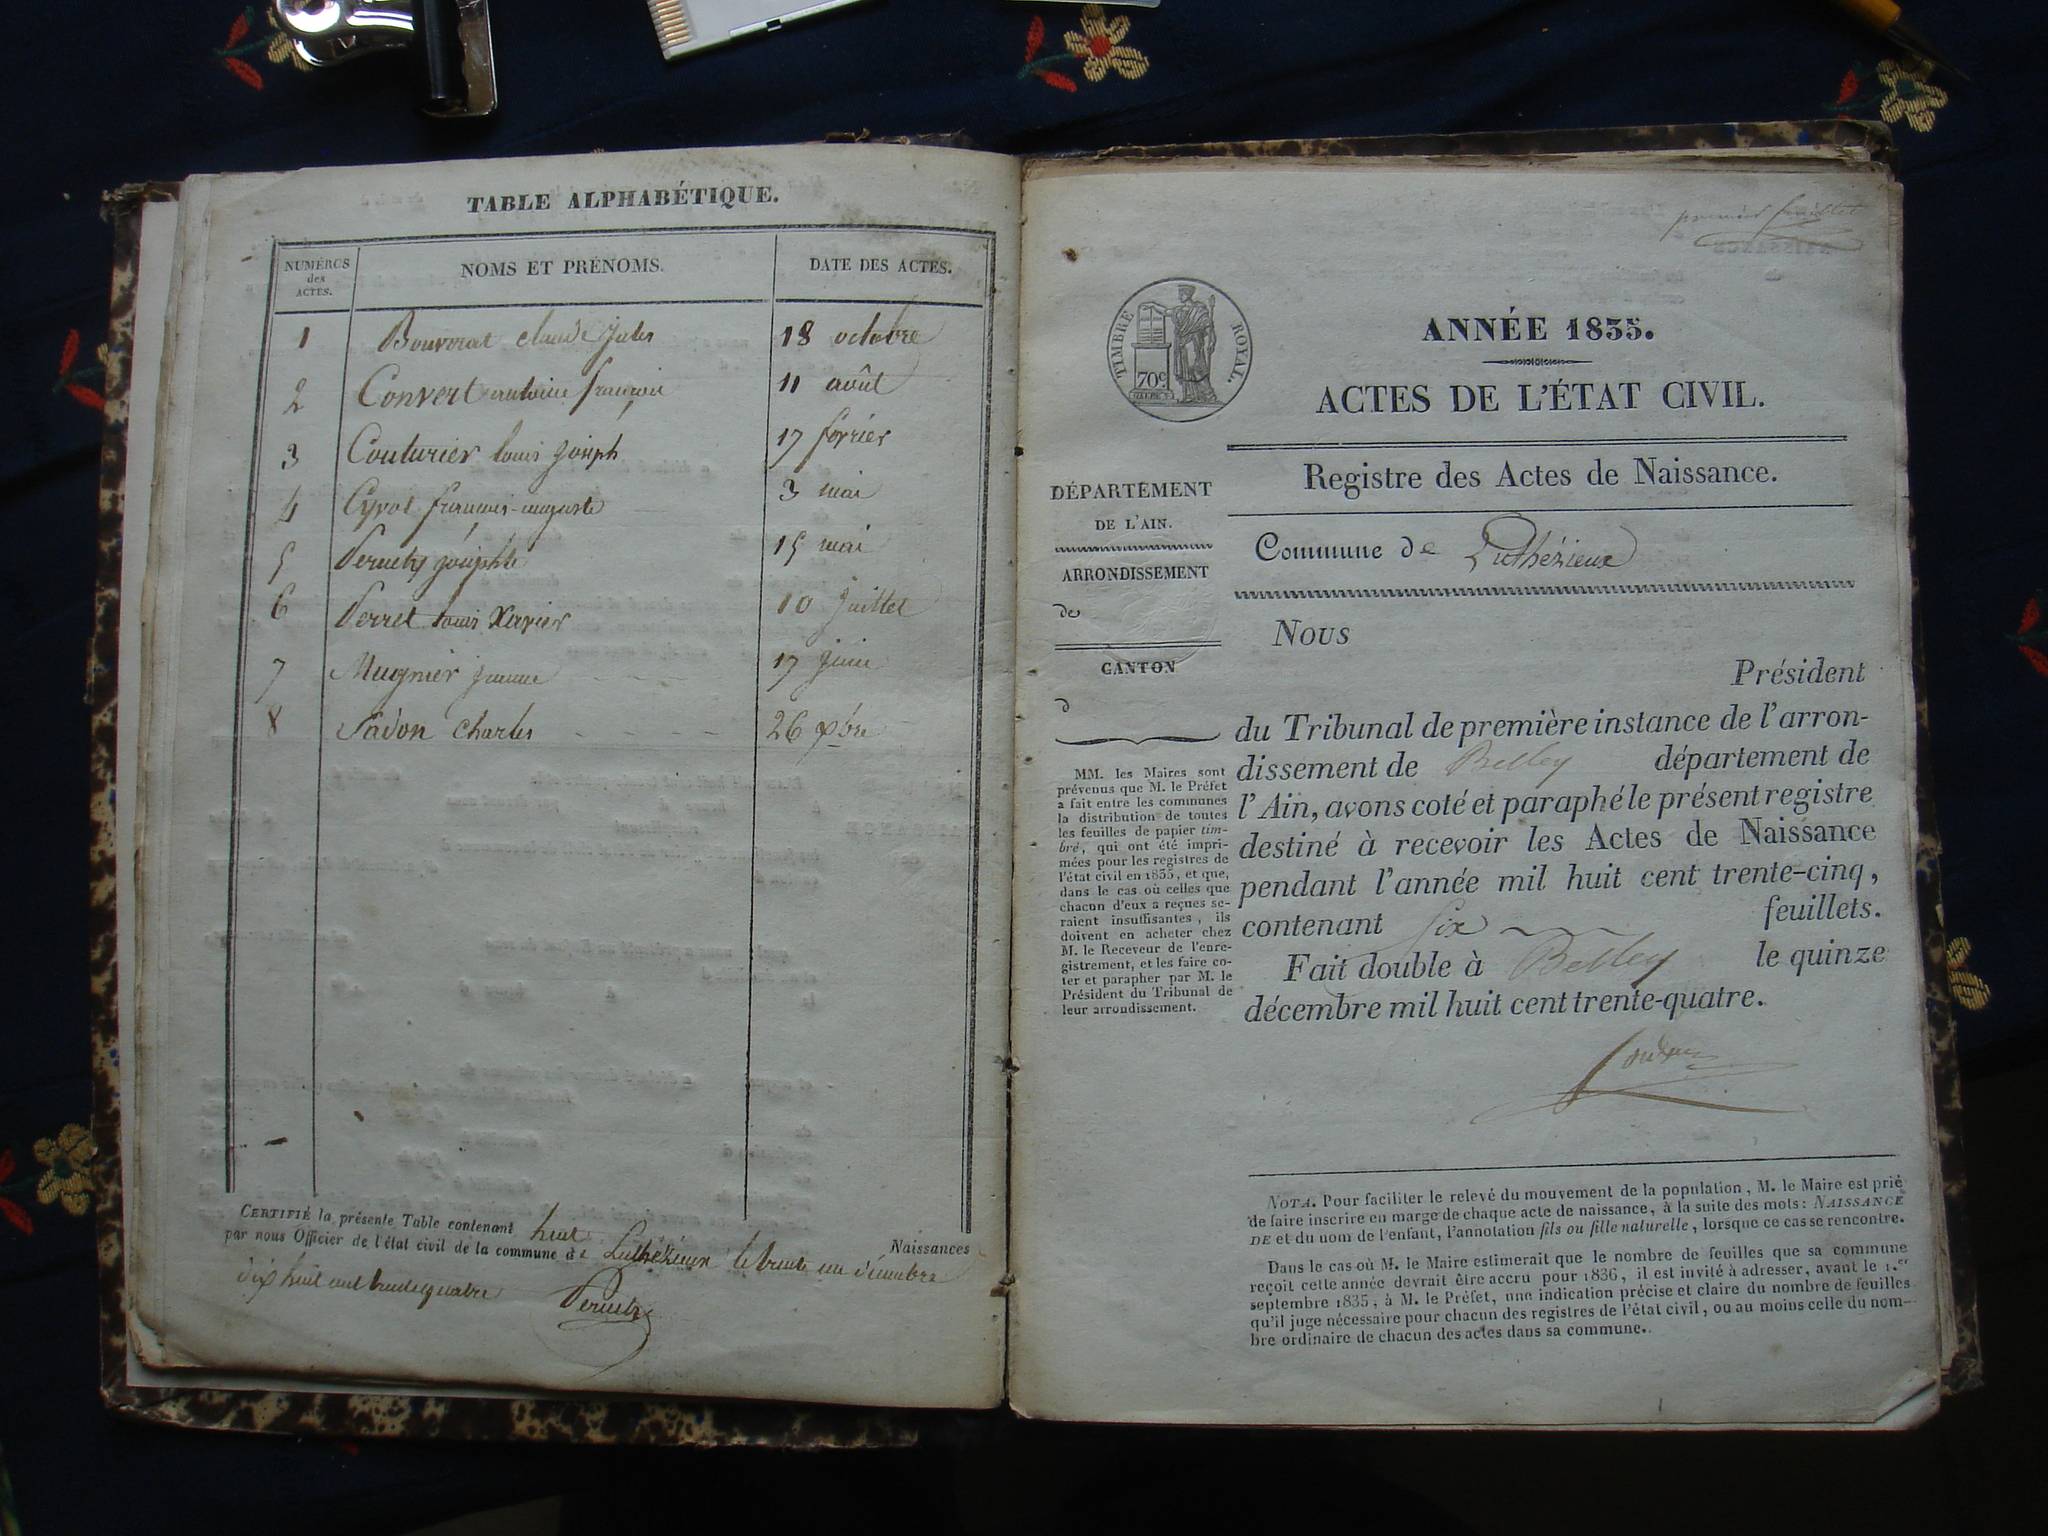 TABLE ALPHABÉTIQUE.
NUMÉROS des ACTES. NOMS ET PRÉNOMS. DATE DES ACTES.
1 Bouvorat claude jules 18 octobre
2 Convert antoine françois 11 août
3 Couturier louis joseph 17 février
4 Cyvot françois-auguste 3 mai
5 joséphte 15 mai
6 Perret louis Xavier 10 juillet
7 Mugnier jeanne 17 juin
8 Savon charles 26 xbre
CERTIFIÉ la présente Table contenant huit Naissances
par nous Officier de l'état civil de la commune de Luthézieux le trente un décembre
dix huit cent trente quatre
premier feuillet
TIMBRE ROYAL.
70c
ANNÉE 1835.
ACTES DE L'ÉTAT CIVIL.
Registre des Actes de Naissance.
DÉPARTEMENT
DE L'AIN.
ARRONDISSEMENT
de
CANTON
d
MM. les Maires sont
prévenus que M. le Préfet
a fait entre les communes
la distribution de toutes
les feuilles de papier tim-
bré, qui ont été impri-
mées pour les registres de
l'état civil en 1835, et que,
dans le cas où celles que
chacun d'eux a reçues se-
raient insuffisantes, ils
doivent en acheter chez
M. le Receveur de l'enre-
gistrement, et les faire co-
ter et parapher par M. le
Président du Tribunal de
leur arrondissement.
Commune de Luthézieux
Nous
Président
du Tribunal de première instance de l'arron-
dissement de Belley département de
l'Ain, avons coté et paraphé le présent registre
destiné à recevoir les Actes de Naissance
pendant l'année mil huit cent trente-cinq,
contenant six feuillets.
Fait double à Belley le quinze
décembre mil huit cent trente-quatre.
NOTA. Pour faciliter le relevé du mouvement de la population, M. le Maire est prié
de faire inscrire en marge de chaque acte de naissance, à la suite des mots: NAISSANCE
DE et du nom de l'enfant, l'annotation fils ou fille naturelle, lorsque ce cas se rencontre.
Dans le cas où M. le Maire estimerait que le nombre de feuilles que sa commune
reçoit cette année devrait être accru pour 1836, il est invité à adresser, avant le 1.er
septembre 1835, à M. le Préfet, une indication précise et claire du nombre de feuilles
qu'il juge nécessaire pour chacun des registres de l'état civil, ou au moins celle du nom-
bre ordinaire de chacun des actes dans sa commune.